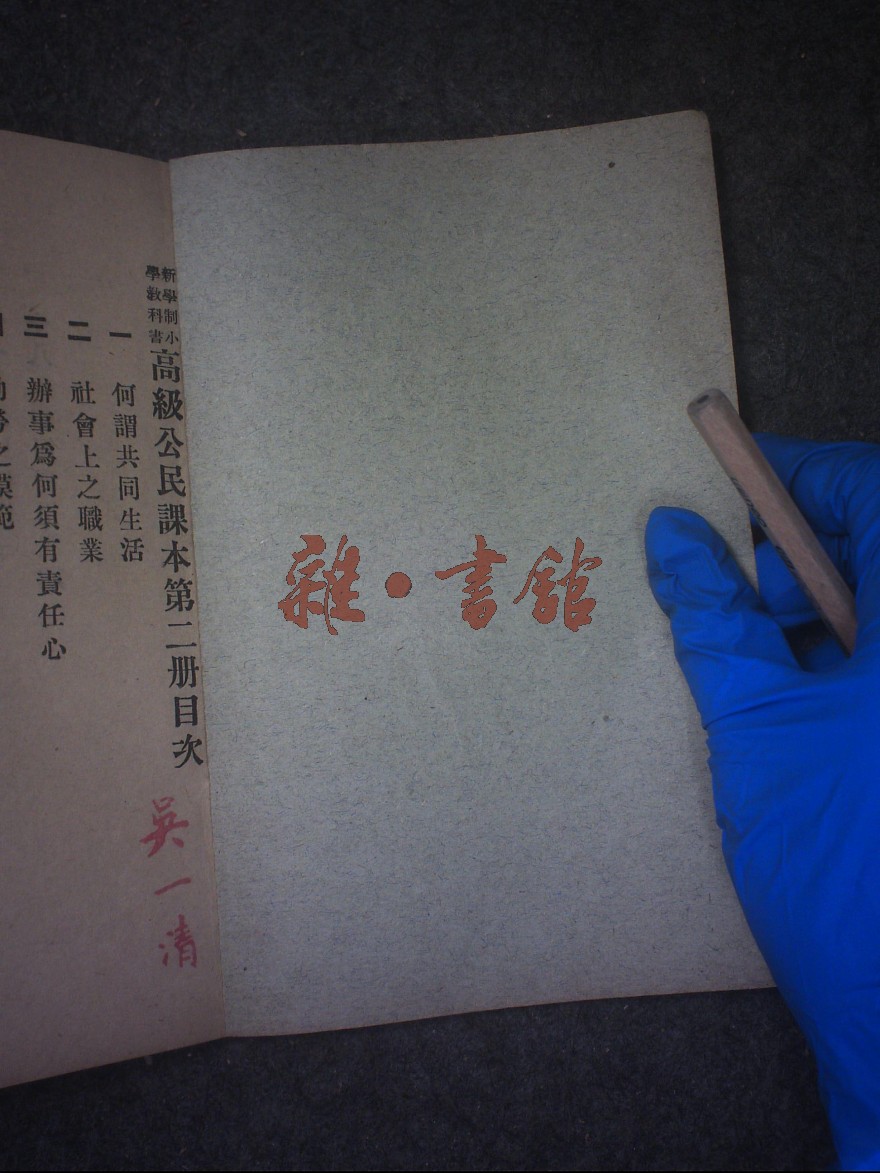 新學制小
學教科書
高級公民課本第二册目次
吳一清
一 何謂共同生活
二 社會上之職業
三 辦事爲何須有責任心
之模範
雜·書館